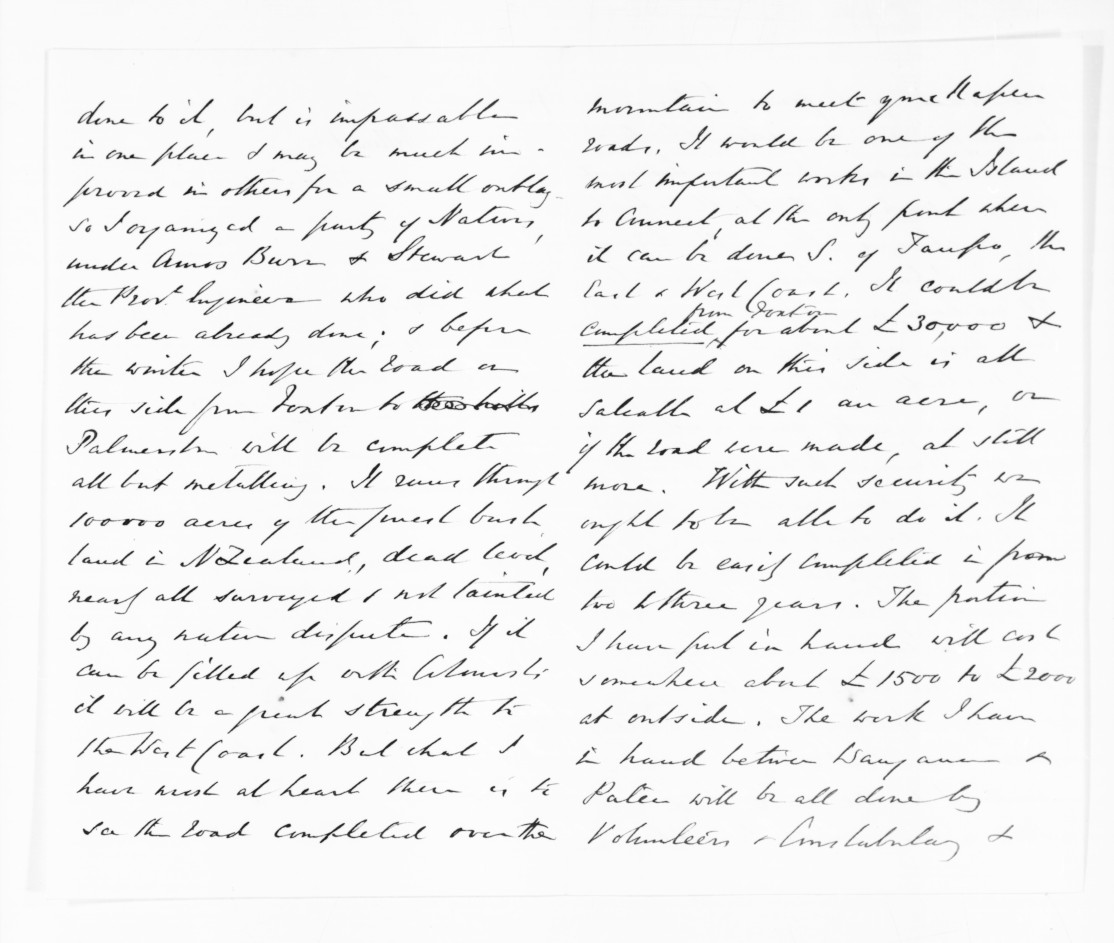 done to it, but is impassable
in one place & may be much im-
proved in others for a small outlay
so I organized a party of Natives,
under Amos Burr & Stewart
the Prov.l Engineer who did what
has been already done; & before
the winter I hope the road on
this side from Foxton to
Palmerston will be complete
all but metalling. It runs through
100000 acres of the finest bush
land in N Zealand, dead level,
nearly all surveyed & not tainted
by any native dispute. If it
can be filled up with Colonists
it will be a great strength to
the West Coast. But what I
have most at heart there is to
see the road completed over the
mountain to meet your Napier
roads. It would be one of the
most important works in the Island
to connect, at the only point where
it can be done S. of Taupo, the
East & West Coast. It could be
from Foxton
completed, for about £30,000 &
the land on this side is all
saleable at £1 an acre, or
if the road were made, at still
more. With such security we
ought to be able to do it. It
could be easily completed in from
two to three years. The portion
I have put in hand will cost
somewhere about £1500 to £2000
at outside. The work I have
in hand between Wanganui &
Patea will be all done by
Volunteers & Constabulary &